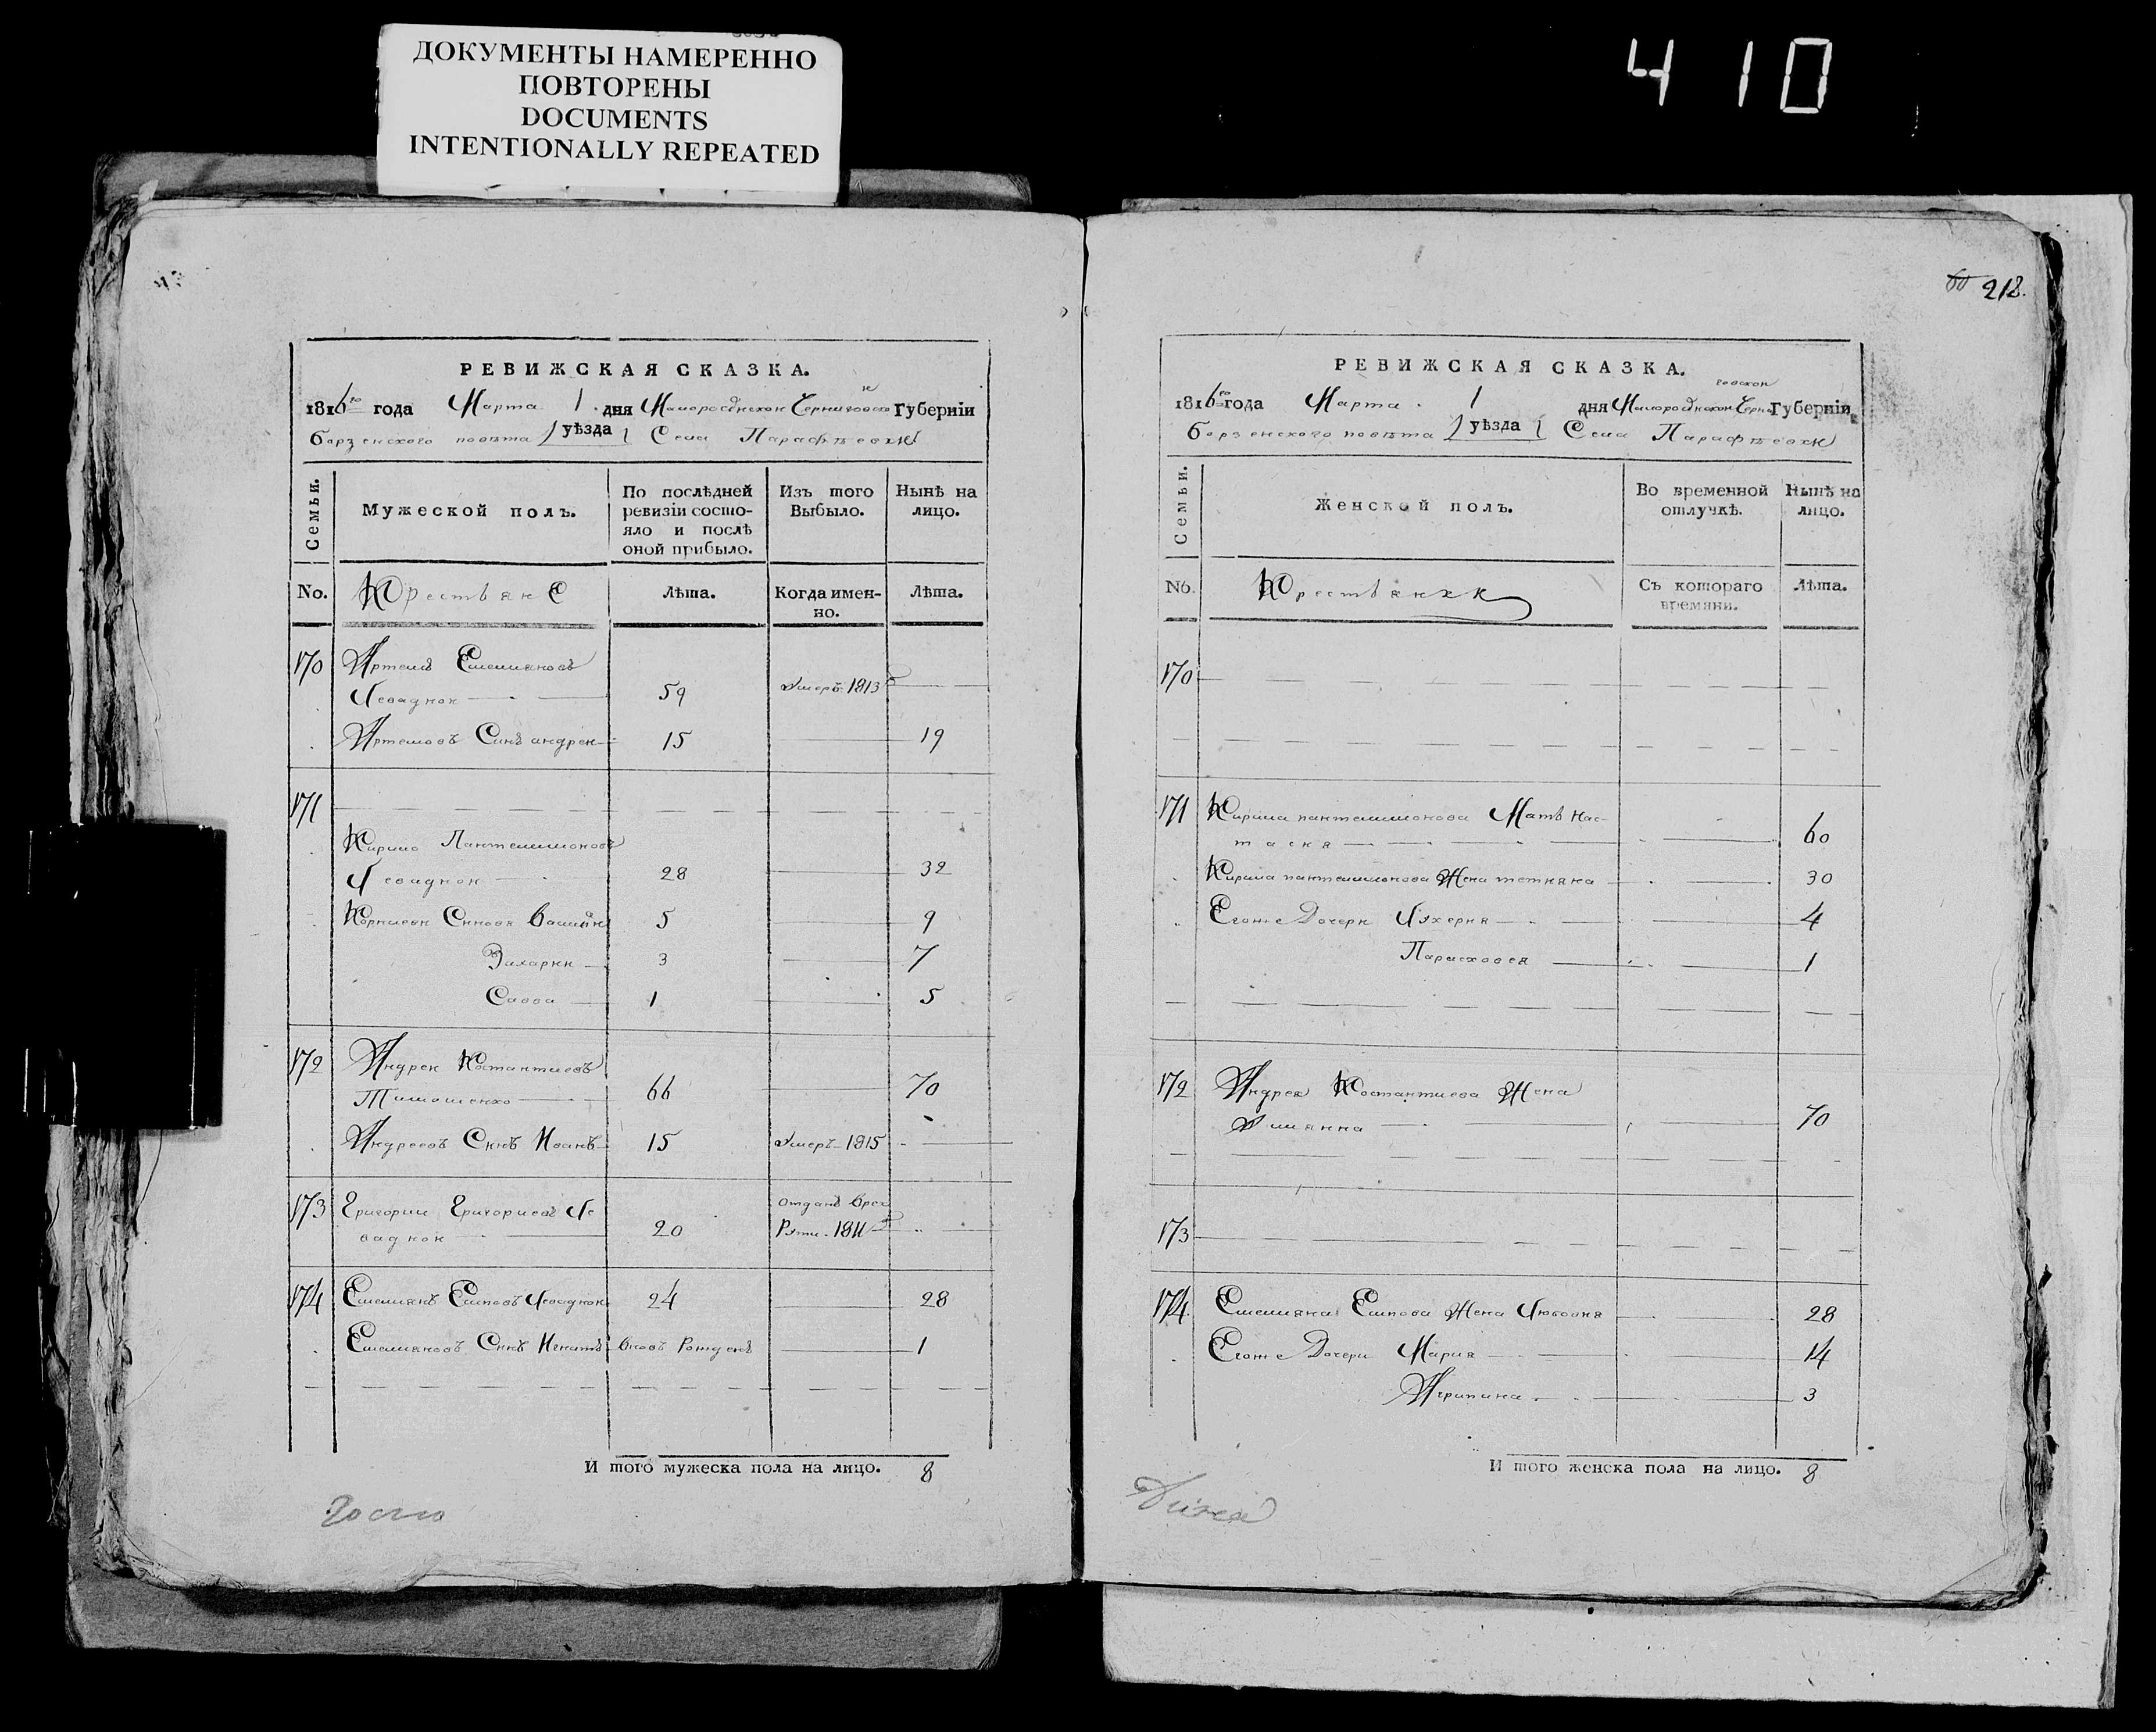 ДОКУМЕНТЫ НАМЕРЕННО
ПОВТОРЕНЫ
DOCUMENTS
INTENTIONALLY REPEATED
410
РЕВИЖСКАЯ СКАЗКА.
1816го года Марта 1 дня Малоросійской Черниговской Губерніи
борзенского повѣта уѣзда Села Парафѣевки
Семьи.
Мужеской полъ.
По послѣдней ревизіи состояло и послѣ оной прибыло.
Изъ того Выбыло.
Нынѣ на лицо.
No. Крестьяне
Лѣта.
Когда именно.
Лѣта.
170 Артемъ Емельяновъ
59 Умеръ 1813
Артемовъ Синъ андрей 15 19
171
Кирило Пантелимоновъ
28 32
Синовя Василий 5 9
Захарий 3 7
Савва 1 5
172 Андрей Костантиевъ
Тимошенко 66 70
Андреевъ Синъ Иванъ 15 Умеръ 1815
173 Григории Григориевъ
20 отданъ врек
Руты 1811
174 Емелиянъ Есиповъ 24 28
Емелияновъ Синъ Игнатъ вновъ Рожденъ 1
И того мужеска пола на лицо. 8
212.
РЕВИЖСКАЯ СКАЗКА.
1816го года Марта 1 дня Малоросійской Черниговской Губерніи
борзенского повѣта уѣзда Села Парафѣевки
Семьи.
Женской полъ.
Во временной отлучкѣ.
Нынѣ на лицо.
No. Крестьянки
Съ котораго времяни.
Лѣта.
170
171 Кирила пантелимонова Мать нас-
тасия 60
Кирила пантелимонова Жена тетияна 30
Егоже Дочери 4
Парасковея 1
172 Андрея Костантиева Жена
Улиянна 70
173
174 Емелияна Есипова Жена 28
Егоже Дочери Мария 14
Агрипина 3
И того женска пола на лицо. 8